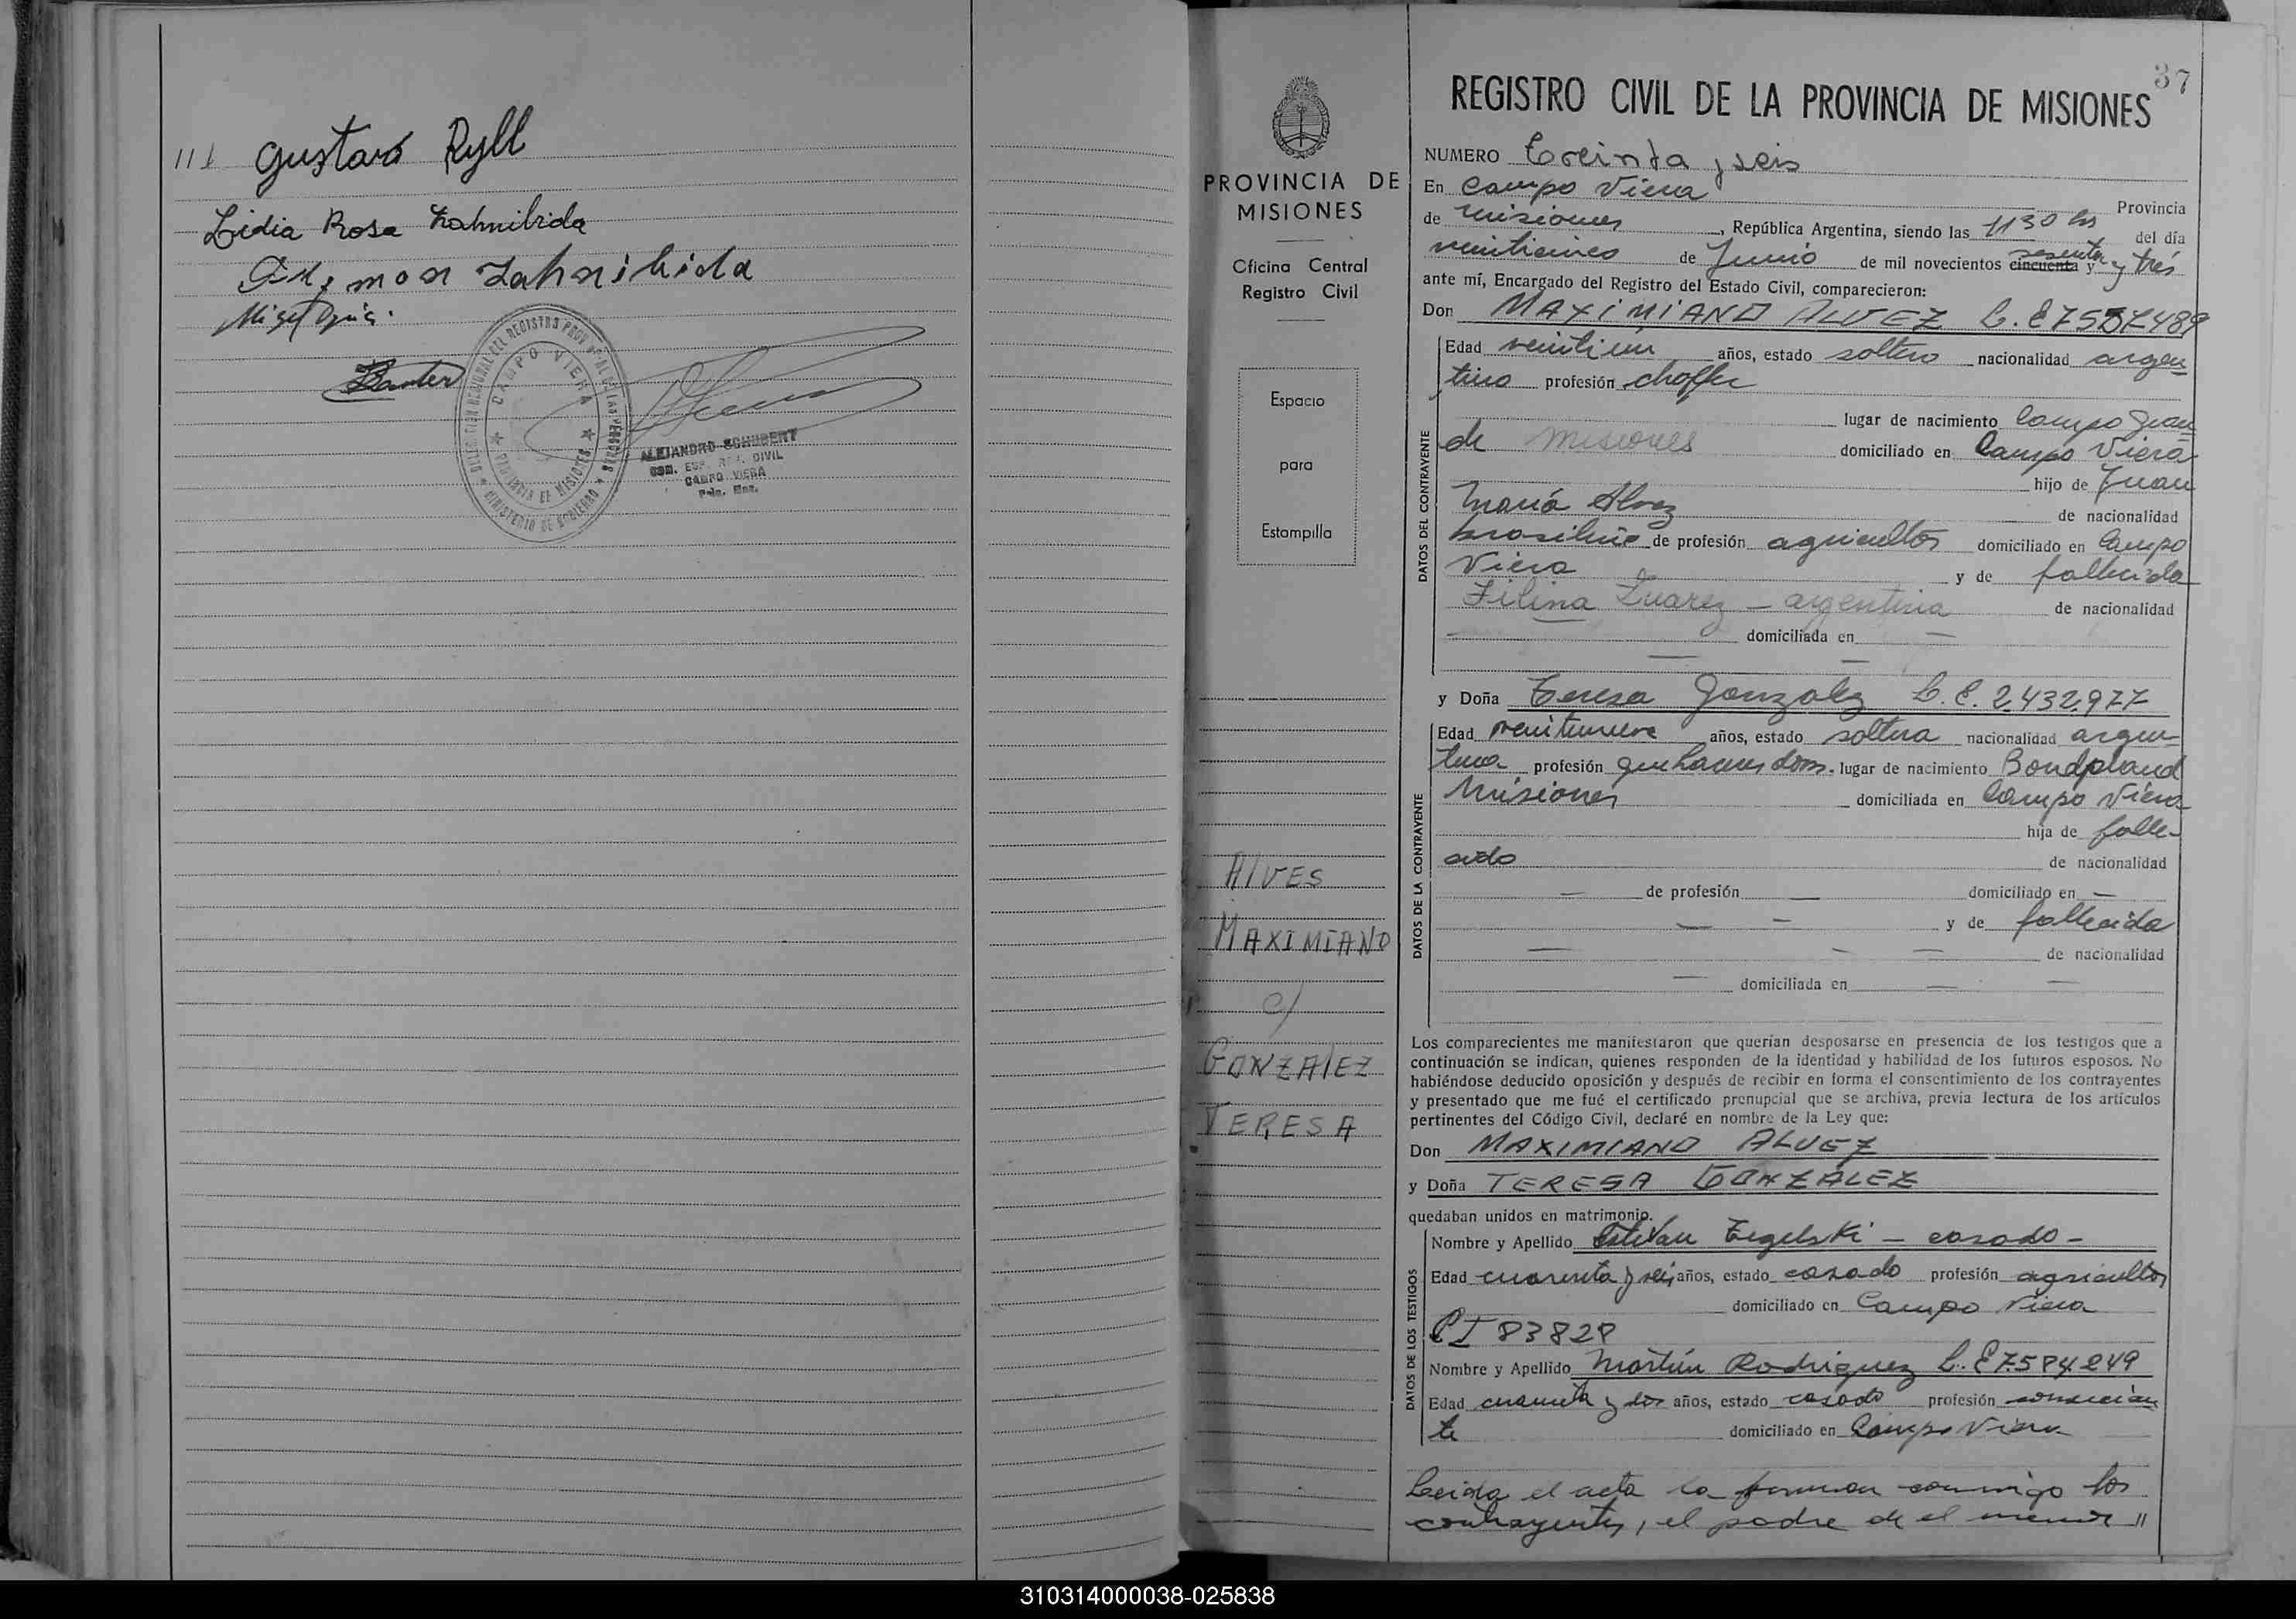 111 Gustavo Ryll
Lidia Rosa Zahnibida
Zahnibida
CAMPO VIERA
PROVINCIA DE MISIONES
MINISTERIO DE GOBIERNO
ALEJANDRO SCHUBERT
CIVIL
CAMPO VIERA
37
PROVINCIA DE
MISIONES
Oficina Central
Registro Civil
Espacio
para
Estampilla
AlVES
MAXIMIANO
c/
GONZAlEZ
TERESA
REGISTRO CIVIL DE LA PROVINCIA DE MISIONES
NUMERO Treinta y seis
En Campo Viera Provincia
de Misiones, República Argentina, siendo las 1130 hs del día
veinticinco de Junio de mil novecientos cincuenta y sesenta y trés
ante mí, Encargado del Registro del Estado Civil, comparecieron:
Don MAXiMiANO ALVEZ L.E
DATOS DEL CONTRAYENTE
Edad veintiun años, estado soltero nacionalidad argen
tino profesión choffer
lugar de nacimiento Campo Gran
de Misiones domiciliado en Campo Viera
hijo de Juan
María Alvez de nacionalidad
brasileño de profesión agricultor domiciliado en Campo
Viera y de fallecida
Filina Suarez - argentina de nacionalidad
— domiciliada en —
y Doña Teresa Gonzalez L.E. 2.432.977
DATOS DE LA CONTRAYENTE
Edad veintinueve años, estado soltera nacionalidad argen
tina profesión quehaceres dom. lugar de nacimiento Bondpland
Misiones domiciliada en Campo Viera
hija de falle-
cido de nacionalidad
— de profesión — domiciliado en —
— — y de fallecida
— — — de nacionalidad
— domiciliada en — —
Los comparecientes me manifestaron que querían desposarse en presencia de los testigos que a
continuación se indican, quienes responden de la identidad y habilidad de los futuros esposos. No
habiéndose deducido oposición y después de recibir en forma el consentimiento de los contrayentes
y presentado que me fué el certificado prenupcial que se archiva, previa lectura de los artículos
pertinentes del Código Civil, declaré en nombre de la Ley que:
Don MAXIMIANO ALVEZ
y Doña TERESA GONZALEZ
quedaban unidos en matrimonio.
DATOS DE LOS TESTIGOS
Nombre y Apellido Estevan Zegelski - casado -
Edad cuarenta y seis años, estado casado profesión agricultor
domiciliado en Campo Viera
CI 83828
Nombre y Apellido Martín Rodriguez L.E 7.584.249
Edad cuarenta y dos años, estado casado profesión comercian
te domiciliado en Campo Viera
Leida el acta la firman conmigo los
contrayentes, el padre de el menor //
310314000038-025838